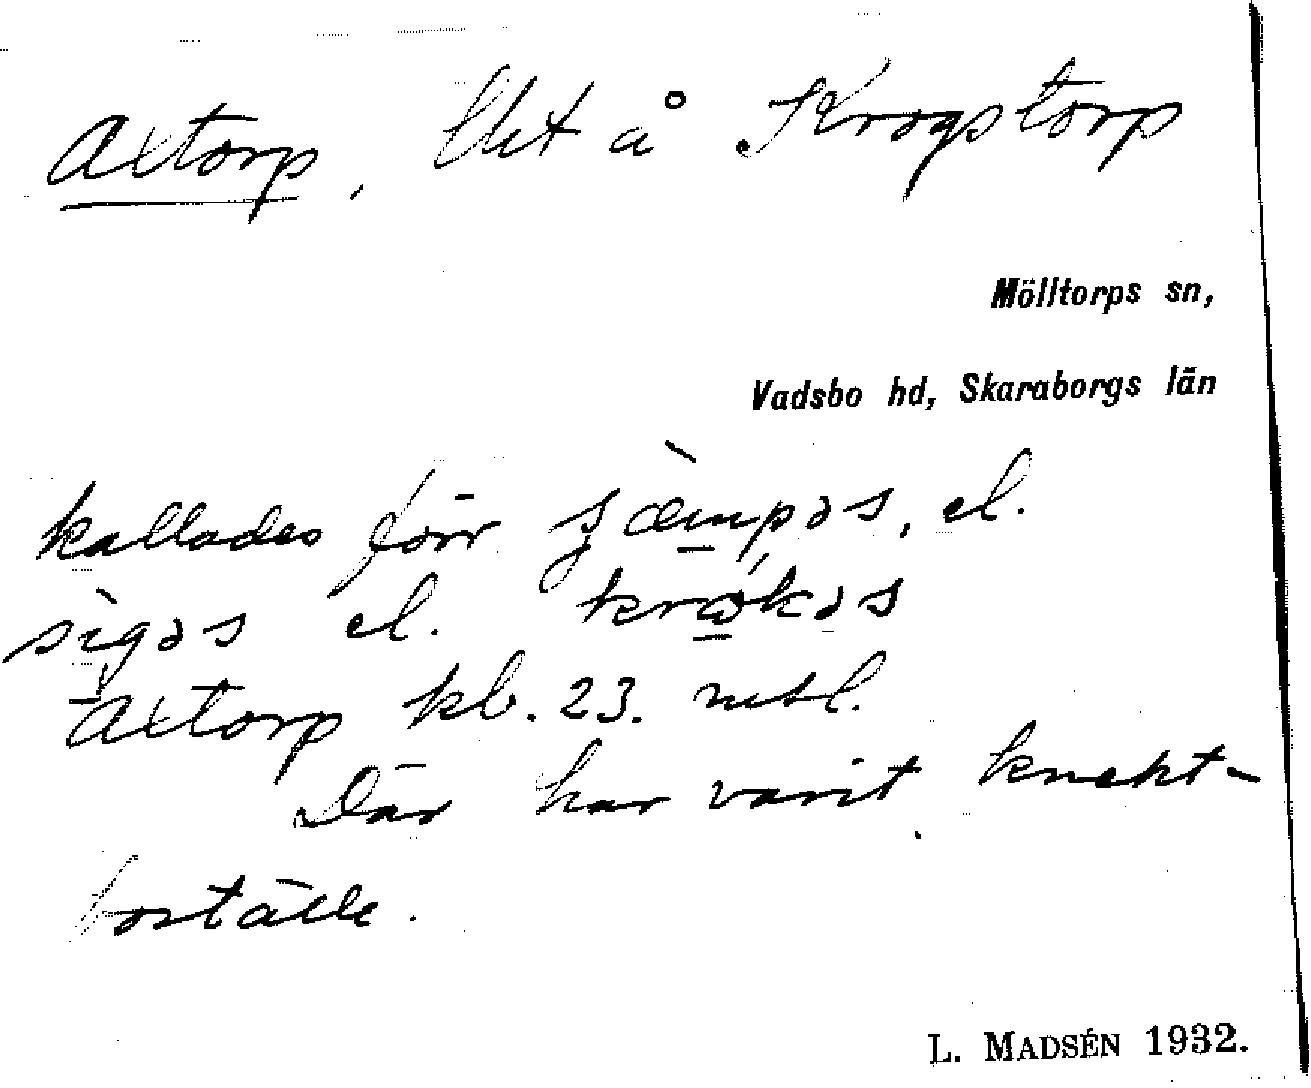 Axtorp, lht å Krogstorp
Mölltorps sn,
Vadsbo hd, Skaraborgs län
kallades förr jæmpəs, el.
sigəs el. krøkəs
Axtorp kb. 23. mtl.
Där har varit knekt-
boställe.
L. MADSÉN 1932.